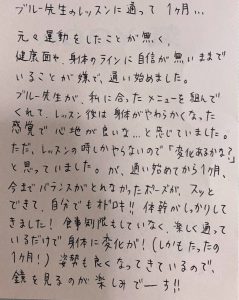 ブルー先生のレッスンに通って1ヶ月...
元々運動をしたことが無く、
健康面や、身体のラインに自信が無いままで
いることが嫌で、通い始めました。
ブルー先生が、私に合ったメニューを組んで
くれて、レッスン後は身体がやわらかくなった
感覚で心地が良いな...と感じていました。
ただ、レッスンの時しかやらないので「変化あるかな?」
と思っていました。が、通い始めてから1ヶ月、
今までバランスがとれなかったポーズが、スッと
できて、自分でも!!体幹がしっかりして
きました!食事制限もしていなく、楽しく通って
いるだけで身体に変化が!(しかもたったの
1ヶ月!)姿勢も良くなってきているので、
鏡を見るのが楽しみでーす!!